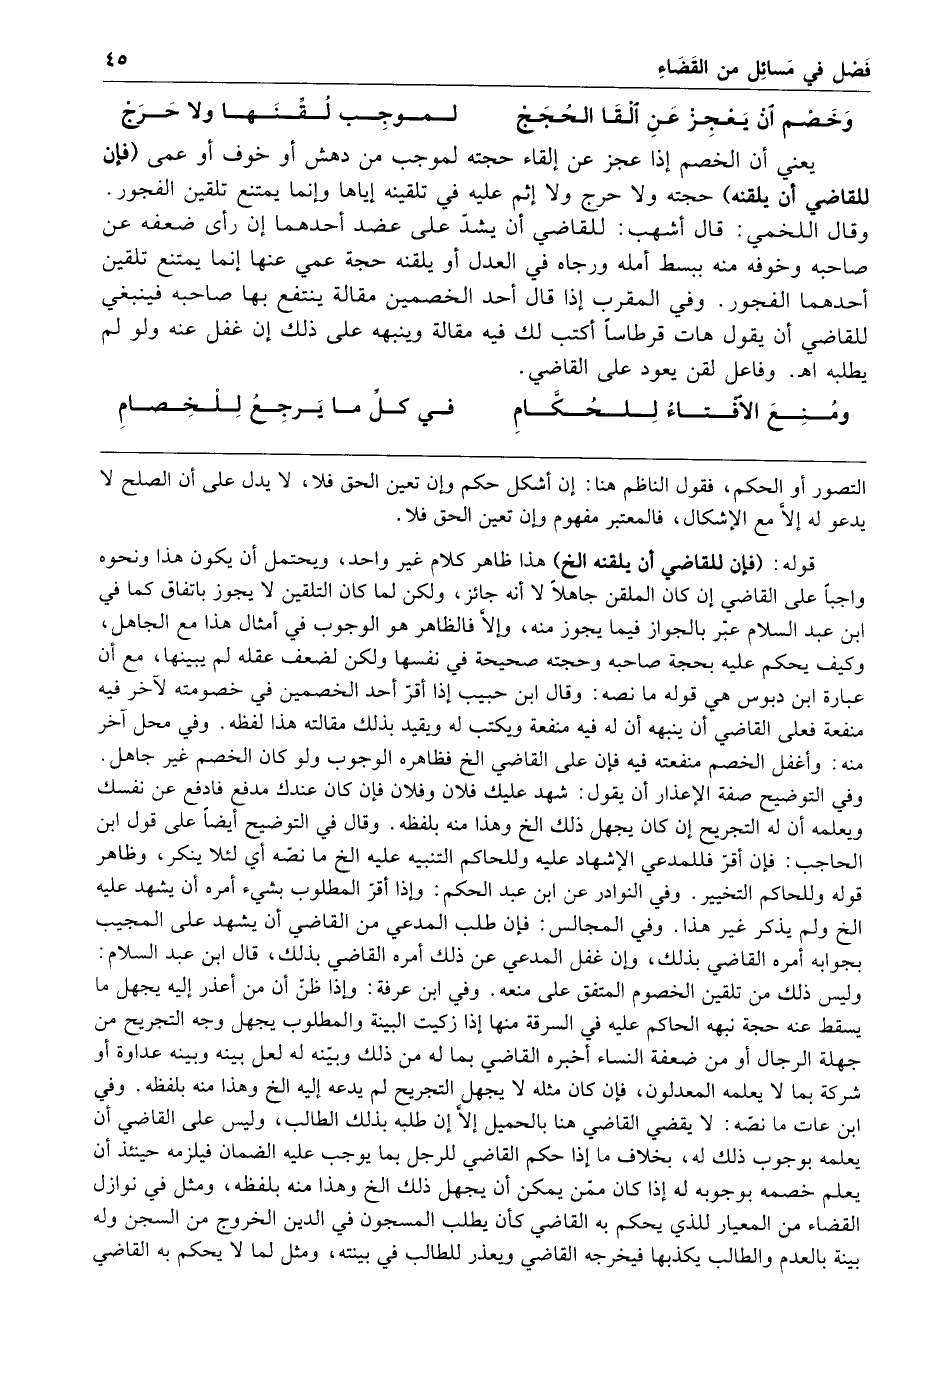 فَصْل في مَسائِل من القَضَاءِ ٤٥
وَخَصْم آنْ يَعْجِزْ عَنِ ٱلْقَا الحُجَجْ لـمـوجِـب لُـقِّـنَـهـا ولا حَـرَجْ
يعني أن الخصم إذا عجز عن إلقاء حجته لموجب من دهش أو خوف أو عمى (فإن
للقاضي أن يلقنه) حجته ولا حرج ولا إثم عليه في تلقينه إياها وإنما يمتنع تلقين الفجور.
وقال اللخمي: قال أشهب: للقاضي أن يشدّ على عضد أحدهما إن رأى ضعفه عن
صاحبه وخوفه منه ببسط أمله ورجاه في العدل أو يلقنه حجة عمي عنها إنما يمتنع تلقين
أحدهما الفجور. وفي المقرب إذا قال أحد الخصمين مقالة ينتفع بها صاحبه فينبغي
للقاضي أن يقول هات قرطاساً أكتب لك فيه مقالة وينبهه على ذلك إن غفل عنه ولو لم
يطلبه اهـ. وفاعل لقن يعود على القاضي.
ومُـنِـعَ الآفْـتـاءُ لِـلـحُـكَّـامِ فـي كـلِّ مـا يَـرجِـعُ لِـلْـخِـصـامِ
التصور أو الحكم، فقول الناظم هنا: إن أشكل حكم وإن تعين الحق فلا، لا يدل على أن الصلح لا
يدعو له إلاَّ مع الإشكال، فالمعتبر مفهوم وإن تعين الحق فلا.
قوله: (فإن للقاضي أن يلقنه الخ) هذا ظاهر كلام غير واحد، ويحتمل أن يكون هذا ونحوه
واجباً على القاضي إن كان الملقن جاهلاً لا أنه جائز، ولكن لما كان التلقين لا يجوز باتفاق كما في
ابن عبد السلام عبّر بالجواز فيما يجوز منه، وإلاَّ فالظاهر هو الوجوب في أمثال هذا مع الجاهل،
وكيف يحكم عليه بحجة صاحبه وحجته صحيحة في نفسها ولكن لضعف عقله لم يبينها، مع أن
عبارة ابن دبوس هي قوله ما نصه: وقال ابن حبيب إذا أقرّ أحد الخصمين في خصومته لآخر فيه
منفعة فعلى القاضي أن ينبهه أن له فيه منفعة ويكتب له ويقيد بذلك مقالته هذا لفظه. وفي محل آخر
منه: وأغفل الخصم منفعته فيه فإن على القاضي الخ فظاهره الوجوب ولو كان الخصم غير جاهل.
وفي التوضيح صفة الإعذار أن يقول: شهد عليك فلان وفلان فإن كان عندك مدفع فادفع عن نفسك
ويعلمه أن له التجريح إن كان يجهل ذلك الخ وهذا منه بلفظه. وقال في التوضيح أيضاً على قول ابن
الحاجب: فإن أقرّ فللمدعي الإشهاد عليه وللحاكم التنبيه عليه الخ ما نصّه أي لئلا ينكر، وظاهر
قوله وللحاكم التخيير. وفي النوادر عن ابن عبد الحكم: وإذا أقرّ المطلوب بشيء أمره أن يشهد عليه
الخ ولم يذكر غير هذا. وفي المجالس: فإن طلب المدعي من القاضي أن يشهد على المجيب
بجوابه أمره القاضي بذلك، وإن غفل المدعي عن ذلك أمره القاضي بذلك، قال ابن عبد السلام:
وليس ذلك من تلقين الخصوم المتفق على منعه. وفي ابن عرفة: وإذا ظنّ أن من أعذر إليه يجهل ما
يسقط عنه حجة نبهه الحاكم عليه في السرقة منها إذا زكيت البينة والمطلوب يجهل وجه التجريح من
جهلة الرجال أو من ضعفة النساء أخبره القاضي بما له من ذلك وبيّنه له لعل بينه وبينه عداوة أو
شركة بما لا يعلمه المعدلون، فإن كان مثله لا يجهل التجريح لم يدعه إليه الخ وهذا منه بلفظه. وفي
ابن عات ما نصّه: لا يقضي القاضي هنا بالحميل إلاَّ إن طلبه بذلك الطالب، وليس على القاضي أن
يعلمه بوجوب ذلك له، بخلاف ما إذا حكم القاضي للرجل بما يوجب عليه الضمان فيلزمه حينئذ أن
يعلم خصمه بوجوبه له إذا كان ممّن يمكن أن يجهل ذلك الخ وهذا منه بلفظه، ومثل في نوازل
القضاء من المعيار للذي يحكم به القاضي كأن يطلب المسجون في الدين الخروج من السجن وله
بينة بالعدم والطالب يكذبها فيخرجه القاضي ويعذر للطالب في بينته، ومثل لما لا يحكم به القاضي